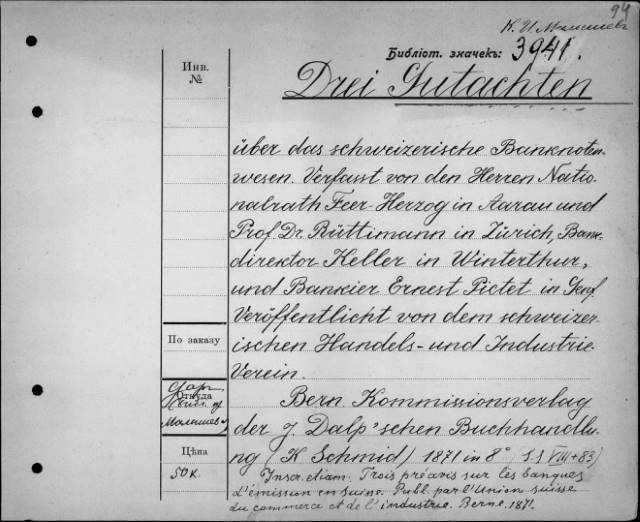 94
К. И. Малышевъ
Библіот. значекъ: 3941.
Инв.
№
Drei Gutachten
über das schweizerische Banknoten
wesen. Verfasst von den Herren Natio
nalrath Feer-Herzog in Aarau und
Prof. Dr. Rüttimann in Zürich, Bank
direktor Keller in Winterthur,
und Bankier Ernest Pictet in Genf.
Veröffentlicht von dem schweizer
ischen Handels- und Industrie
Verein.
По заказу
Bern. Kommissionsverlag
Откуда
Дар
Малышева
der J. Dalp'schen Buchhandlu
ng (K Schmid) 1871 in 8° (S.S VIII+83)
Цѣна
50 к.
Inscr. etiam: Trois préavis sur les banques
d'émission en suisse. Publ. par l'Union suisse
du commerce et de l'industrie. Berne. 1871.